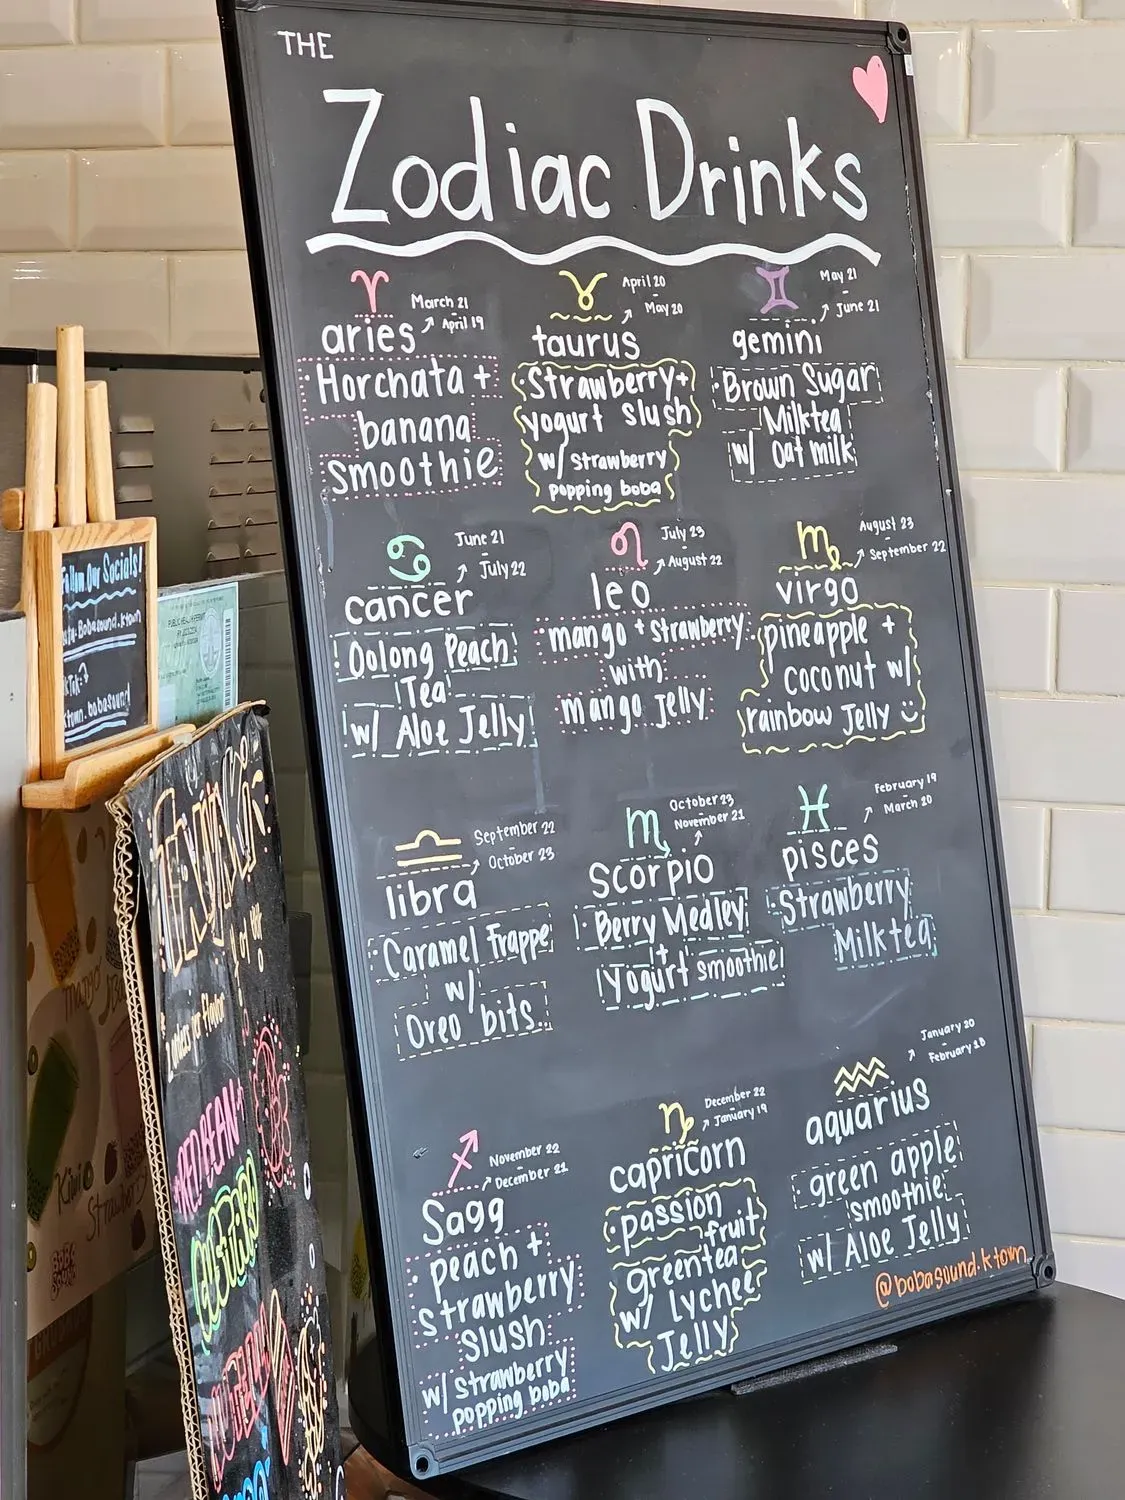 THE
Zodiac Drinks
March 21
-
April 19
aries
Horchata +
banana
smoothie
April 20
-
May 20
taurus
Strawberry+
yogurt slush
w/ strawberry
popping boba
May 21
-
June 21
gemini
Brown Sugar
Milktea
w/ Oat milk
June 21
-
July 22
cancer
Oolong Peach
Tea
w/ Aloe Jelly
July 23
-
August 22
leo
mango + strawberry
with
mango jelly
August 23
-
September 22
virgo
pineapple +
coconut w/
rainbow Jelly
September 22
-
October 23
libra
Caramel Frappe
w/
Oreo bits
October 23
-
November 21
Scorpio
Berry Medley
+
Yogurt smoothie
February 19
-
March 20
pisces
Strawberry
Milktea
November 22
-
December 21
Sagg
peach +
strawberry
slush
w/ strawberry
popping boba
December 22
-
January 19
capricorn
passion
fruit
greentea
w/ Lychee
Jelly
January 20
-
February 18
aquarius
green apple
smoothie
w/ Aloe Jelly
@bobasound.ktown
Follow Our Socials!
Bobasound.ktown
ktown.bobasound
PUBLIC HEALTH PERMIT
RED BEAN
Kiwi
Strawberry
BOBA
SOUND